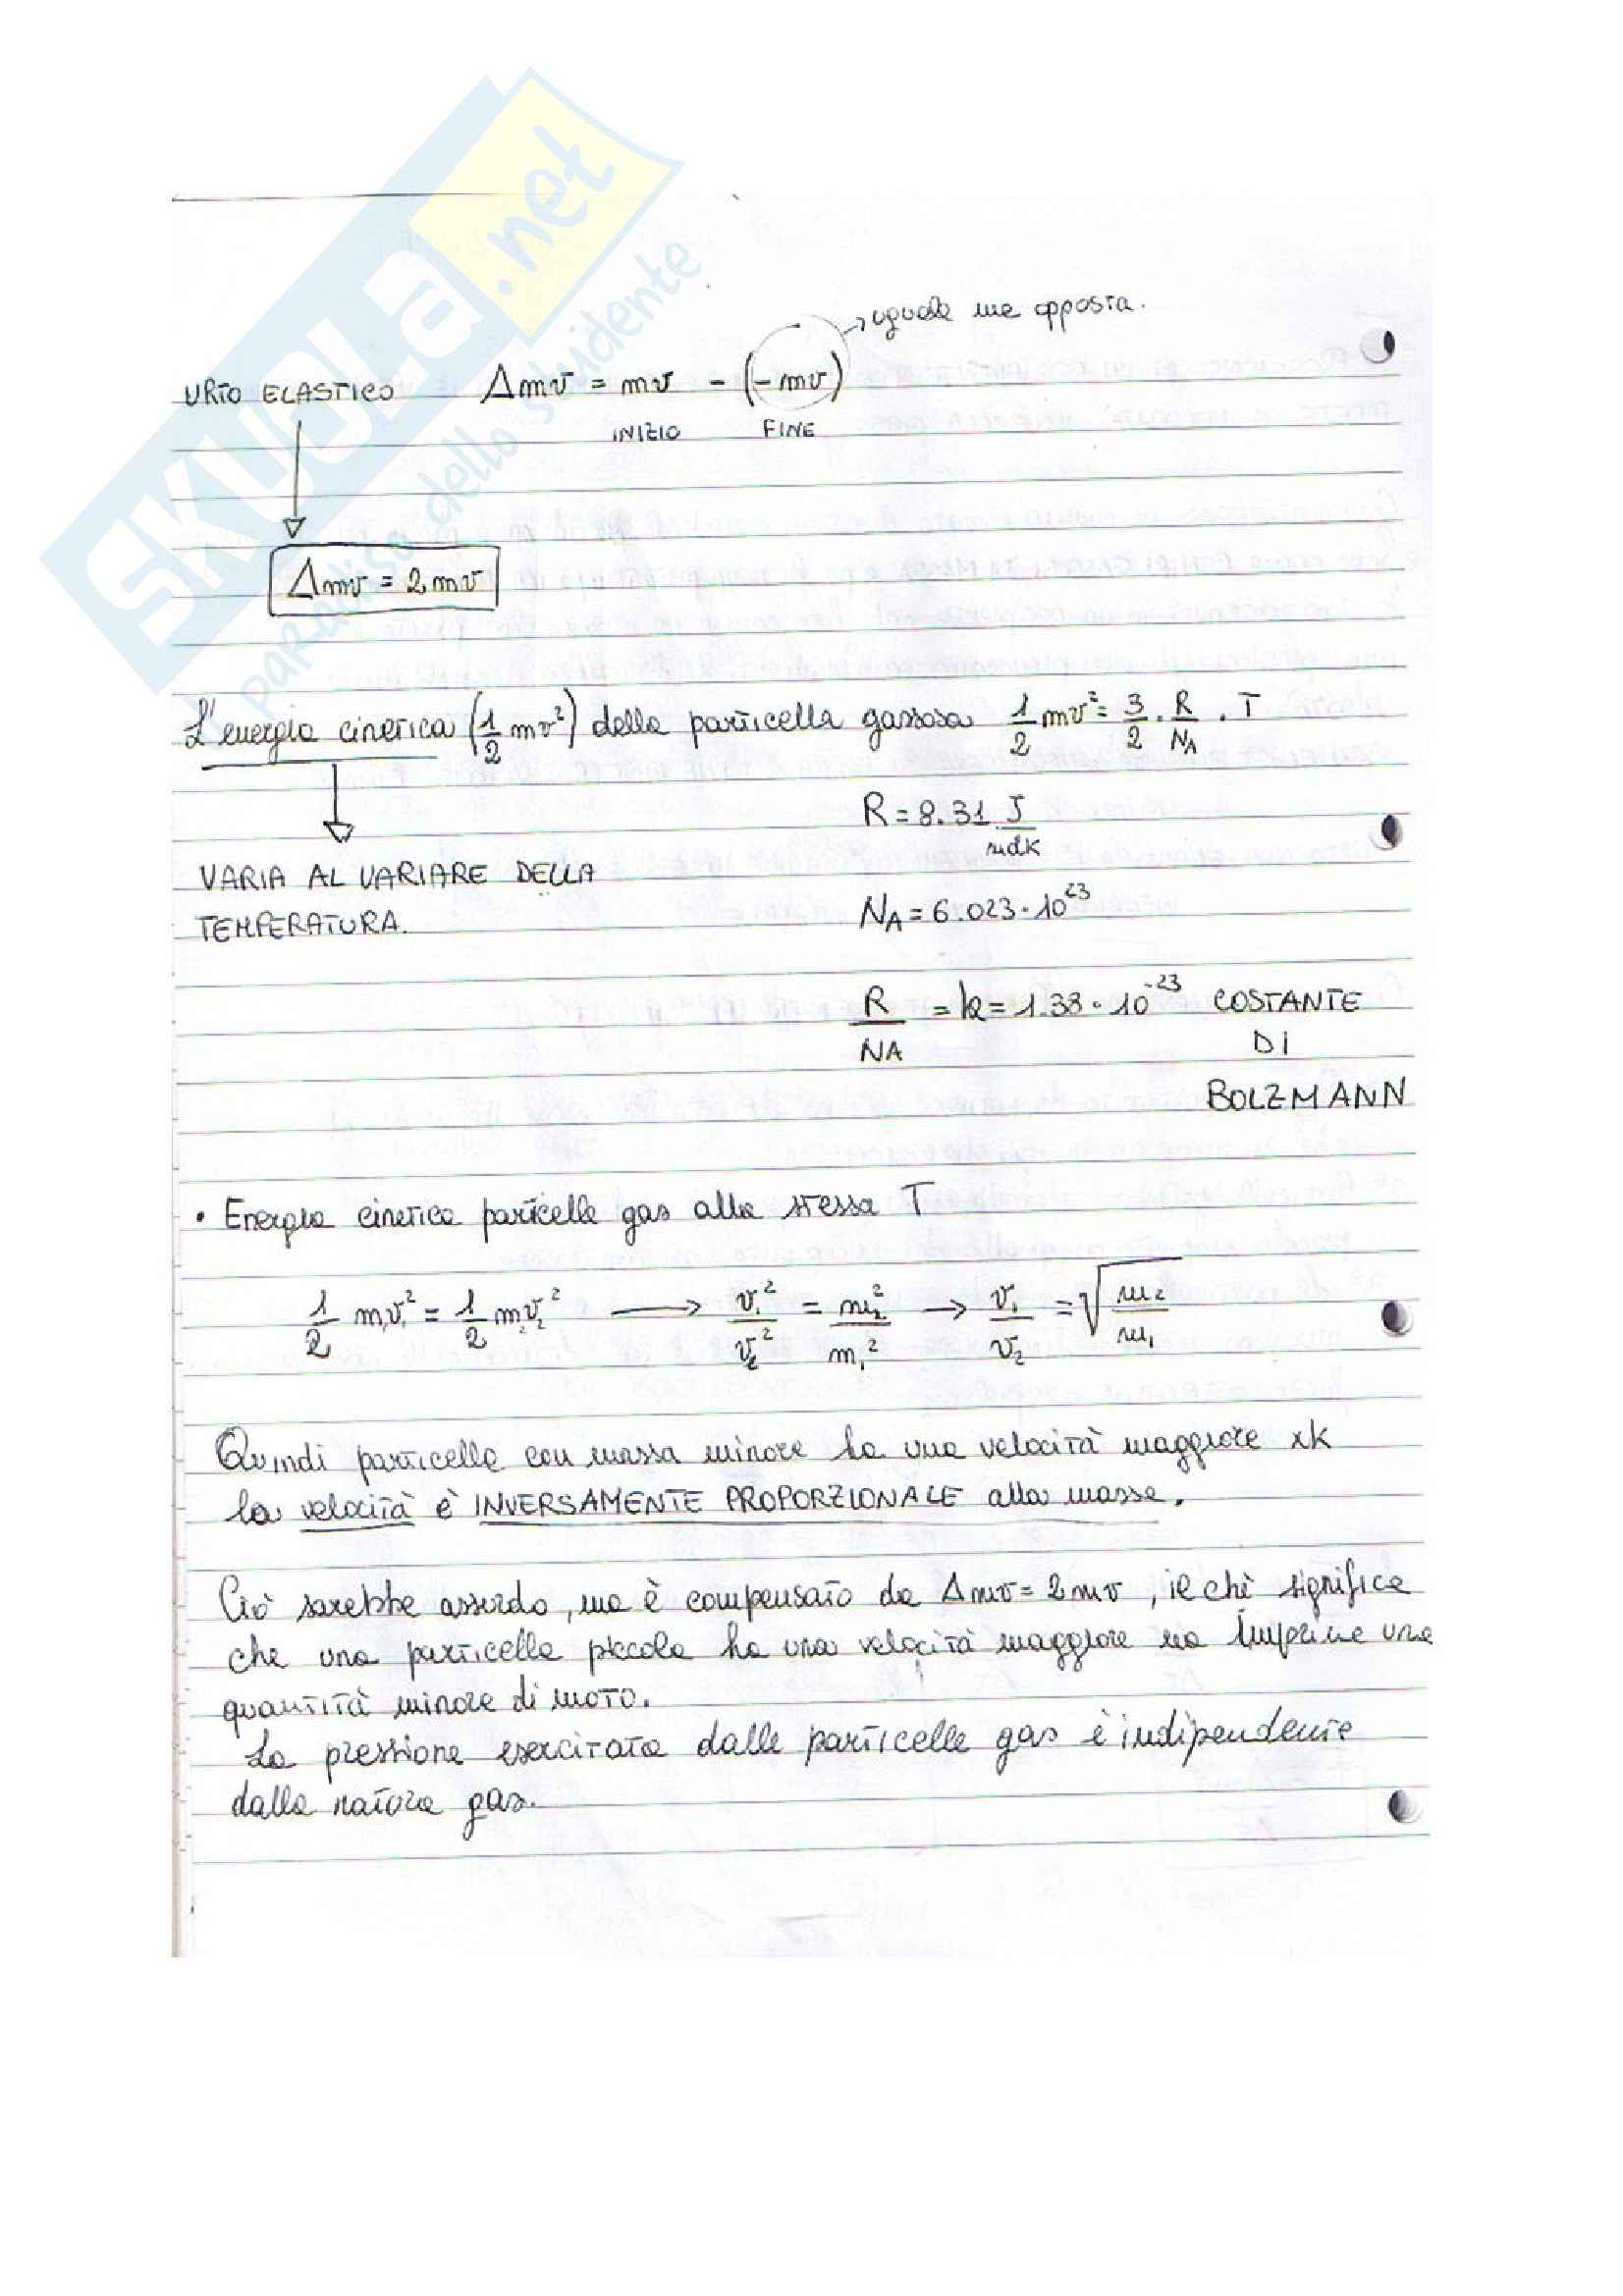 SKUOLA.net
il paradiso dello studente
uguale ma opposta.
URTO ELASTICO Δmv = mv - (-mv)
INIZIO FINE
Δmv = 2mv
L'energia cinetica (1/2 mv²) della particella gassosa 1/2 mv² = 3/2 · R/NA · T
R = 8.31 J/molK
VARIA AL VARIARE DELLA
TEMPERATURA.
NA = 6.023 · 10²³
R/NA = k = 1.38 · 10⁻²³ COSTANTE
DI
BOLZMANN
• Energia cinetica particelle gas alla stessa T
1/2 m₁v₁² = 1/2 m₂v₂² → v₁²/v₂² = m₂²/m₁² → v₁/v₂ = √(m₂/m₁)
Quindi particella con massa minore ha una velocità maggiore xk
la velocità è INVERSAMENTE PROPORZIONALE alla massa.
Ciò sarebbe assurdo, ma è compensato da Δmv = 2mv, il chè significa
che una particella piccola ha una velocità maggiore ma imprime una
quantità minore di moto.
La pressione esercitata dalle particelle gas è indipendente
dalla natura gas.